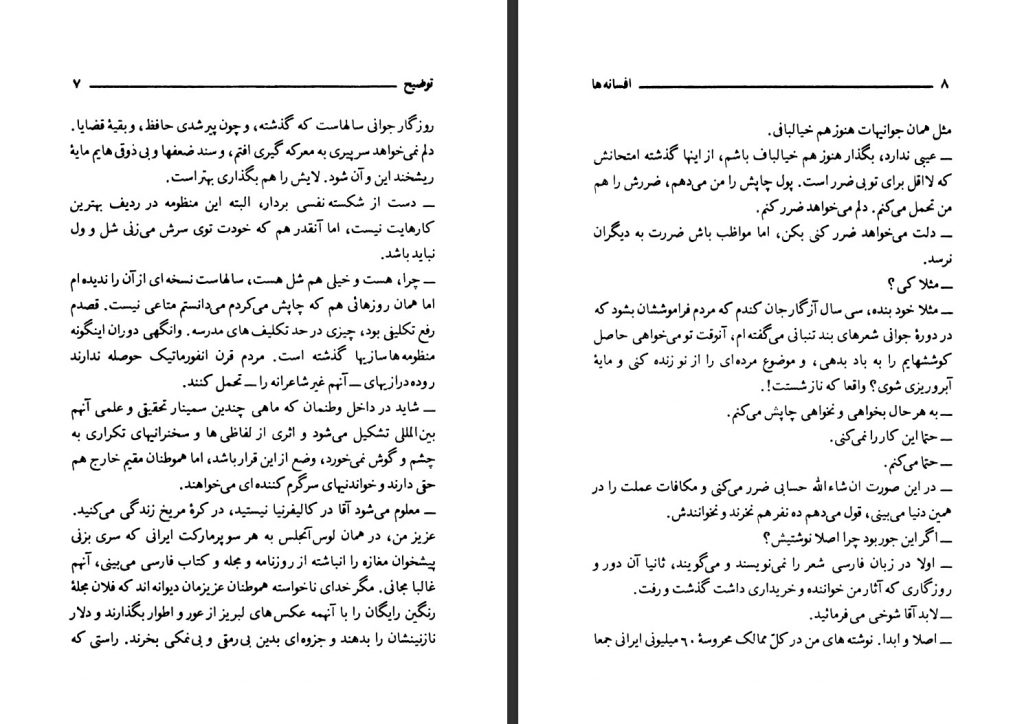 توضیح ۷
روزگار جوانی سالهاست که گذشته، و چون پیر شدی حافظ، و بقیهٔ قضایا.
دلم نمی‌خواهد سر پیری به معرکه گیری افتم، و سند ضعفها و بی ذوقی هایم مایهٔ
ریشخند این و آن شود. لایش را هم بگذاری بهتر است.
ــ دست از شکسته نفسی بردار، البته این منظومه در ردیف بهترین
کارهایت نیست، اما آنقدر هم که خودت توی سرش می‌زنی شل و ول
نباید باشد.
ــ چرا، هست و خیلی هم شل هست، سالهاست نسخه ای از آن را ندیده ام
اما همان روزهائی هم که چاپش می‌کردم می‌دانستم متاعی نیست. قصدم
رفع تکلیفی بود، چیزی در حد تکلیف های مدرسه. وانگهی دوران اینگونه
منظومه ها سازیها گذشته است. مردم قرن انفورماتیک حوصله ندارند
روده درازیهای ــ آنهم غیر شاعرانه را ــ تحمل کنند.
ــ شاید در داخل وطنمان که ماهی چندین سمینار تحقیقی و علمی آنهم
بین‌المللی تشکیل می‌شود و اثری از لفاظی ها و سخنرانیهای تکراری به
چشم و گوش نمی‌خورد، وضع از این قرار باشد، اما هموطنان مقیم خارج هم
حقی دارند و خواندنیهای سرگرم کننده ای می‌خواهند.
ــ معلوم می‌شود آقا در کالیفرنیا نیستید، در کرهٔ مریخ زندگی می‌کنید.
عزیز من، در همان لوس‌آنجلس به هر سوپرمارکت ایرانی که سری بزنی
پیشخوان مغازه را انباشته از روزنامه و مجله و کتاب فارسی می‌بینی، آنهم
غالبا مجانی. مگر خدای ناخواسته هموطنان عزیزمان دیوانه اند که فلان مجلهٔ
رنگین رایگان را با آنهمه عکس‌های لبریز از عور و اطوار بگذارند و دلار
نازنینشان را بدهند و جزوه ای بدین بی‌رمقی و بی‌نمکی بخرند. راستی که
۸ افسانه ها
مثل همان جوانیهات هنوز هم خیالبافی.
ــ عیبی ندارد، بگذار هنوز هم خیالباف باشم، از اینها گذشته امتحانش
که لااقل برای تو بی ضرر است. پول چاپش را من می‌دهم، ضررش را هم
من تحمل می‌کنم. دلم می‌خواهد ضرر کنم.
ــ دلت می‌خواهد ضرر کنی بکن، اما مواظب باش ضررت به دیگران
نرسد.
ــ مثلا کی؟
ــ مثلا خود بنده، سی سال آزگار جان کندم که مردم فراموششان بشود که
در دورهٔ جوانی شعرهای بند تنبانی می‌گفته ام، آنوقت تو می‌خواهی حاصل
کوششهایم را به باد بدهی، و موضوع مرده ای را از نو زنده کنی و مایهٔ
آبروریزی شوی؟ واقعا که ناز شستت!.
ــ به هر حال بخواهی و نخواهی چاپش می‌کنم.
ــ حتما این کار را نمی‌کنی.
ــ حتما می‌کنم.
ــ در این صورت ان شاءالله حسابی ضرر می‌کنی و مکافات عملت را در
همین دنیا می‌بینی، قول می‌دهم ده نفر هم نخرند و نخوانندش.
ــ اگر این جور بود چرا اصلا نوشتیش؟
ــ اولا در زبان فارسی شعر را نمی‌نویسند و می‌گویند، ثانیا آن دور و
روزگاری که آثار من خواننده و خریداری داشت گذشت و رفت.
ــ لابد آقا شوخی می‌فرمائید.
ــ اصلا و ابدا. نوشته های من در کلّ ممالک محروسهٔ ۶۰ میلیونی ایرانی جمعا